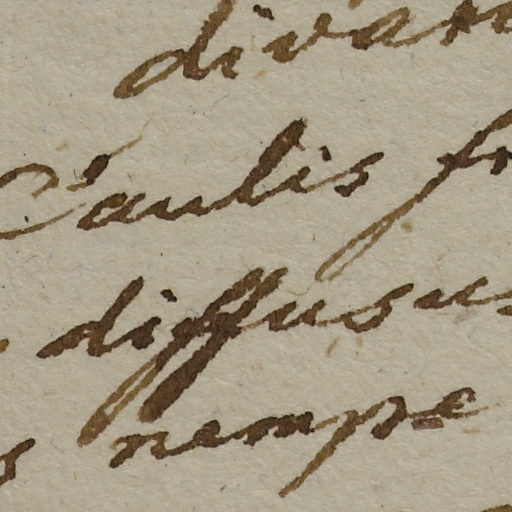 divar
Caulis fr
diffusus
s nempe